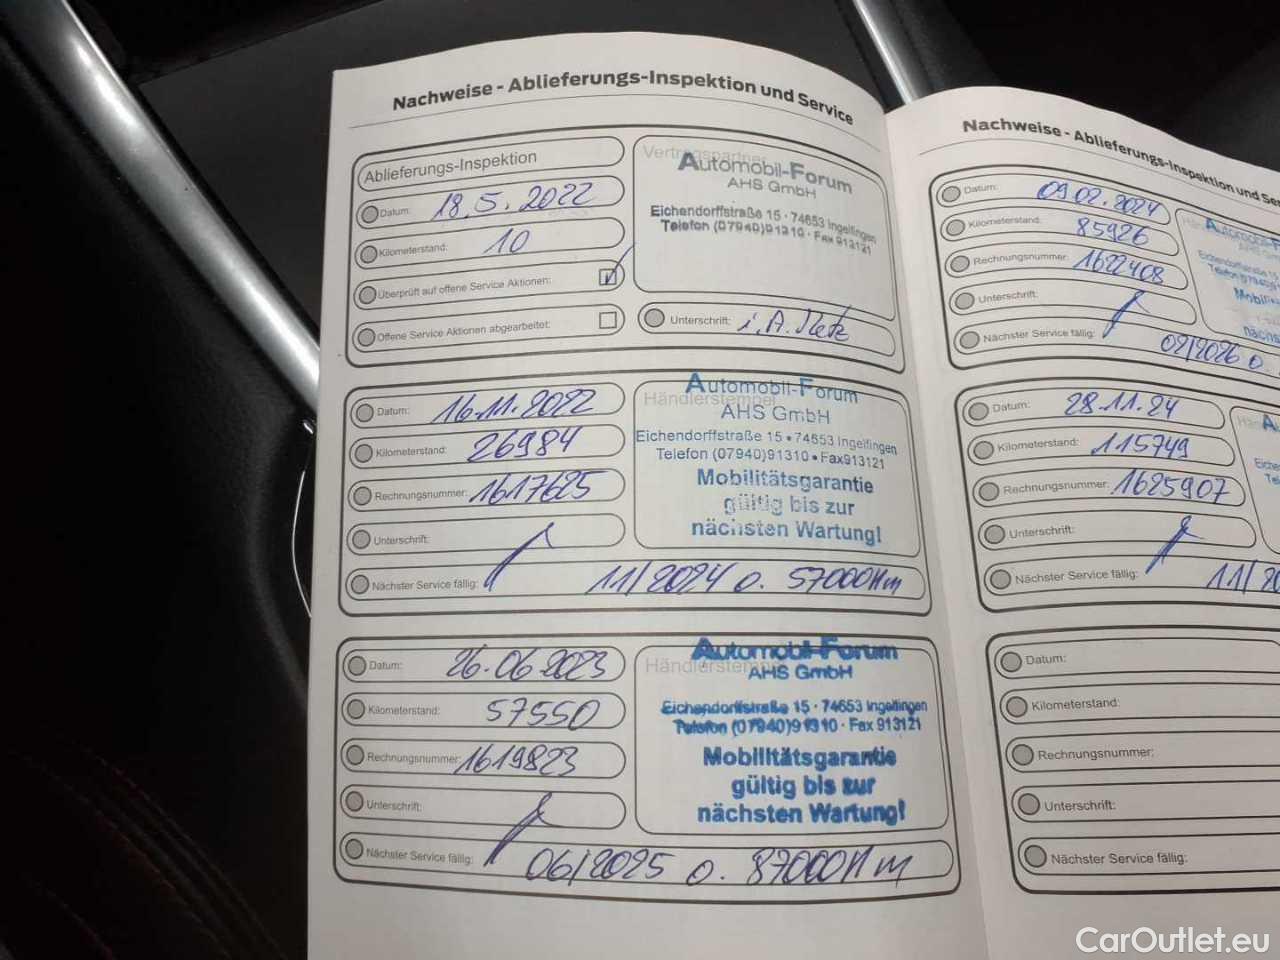 Nachweise - Ablieferungs-Inspektion und Service
Ablieferungs-Inspektion
Datum: 18.5.2022
Kilometerstand: 10
Überprüft auf offene Service Aktionen:
Offene Service Aktionen abgearbeitet:
Vertragspartner
Automobil-Forum
AHS GmbH
Eichendorffstraße 15 · 74653 Ingelfingen
Telefon (07940)91310 · Fax 913121
Unterschrift: i.A. Metz
Datum: 16.11.2022
Kilometerstand: 26984
Rechnungsnummer: 1617625
Unterschrift:
Nächster Service fällig: 11/2024 o. 57000Km
Händlerstempel
Automobil-Forum
AHS GmbH
Eichendorffstraße 15 • 74653 Ingelfingen
Telefon (07940)91310 • Fax913121
Mobilitätsgarantie
gültig bis zur
nächsten Wartung!
Datum: 26.06.2023
Kilometerstand: 57550
Rechnungsnummer: 1619823
Unterschrift:
Nächster Service fällig: 06/2025 o. 87000Km
Händlerstempel
Automobil-Forum
AHS GmbH
Eichendorffstraße 15 · 74653 Ingelfingen
Telefon (07940)91310 · Fax 913121
Mobilitätsgarantie
gültig bis zur
nächsten Wartung!
Nachweise - Ablieferungs-Inspektion und Ser
Datum: 09.02.2024
Kilometerstand: 85926
Rechnungsnummer: 1622408
Unterschrift:
Nächster Service fällig: 02/2026 o.
Automobil-F
AHS G
Eichendorffstraße
Telefon (07940)9
Mobili
nächs
Datum: 28.11.24
Kilometerstand: 115749
Rechnungsnummer: 1625907
Unterschrift:
Nächster Service fällig: 11/20
Datum:
Kilometerstand:
Rechnungsnummer:
Unterschrift:
Nächster Service fällig:
CarOutlet.eu